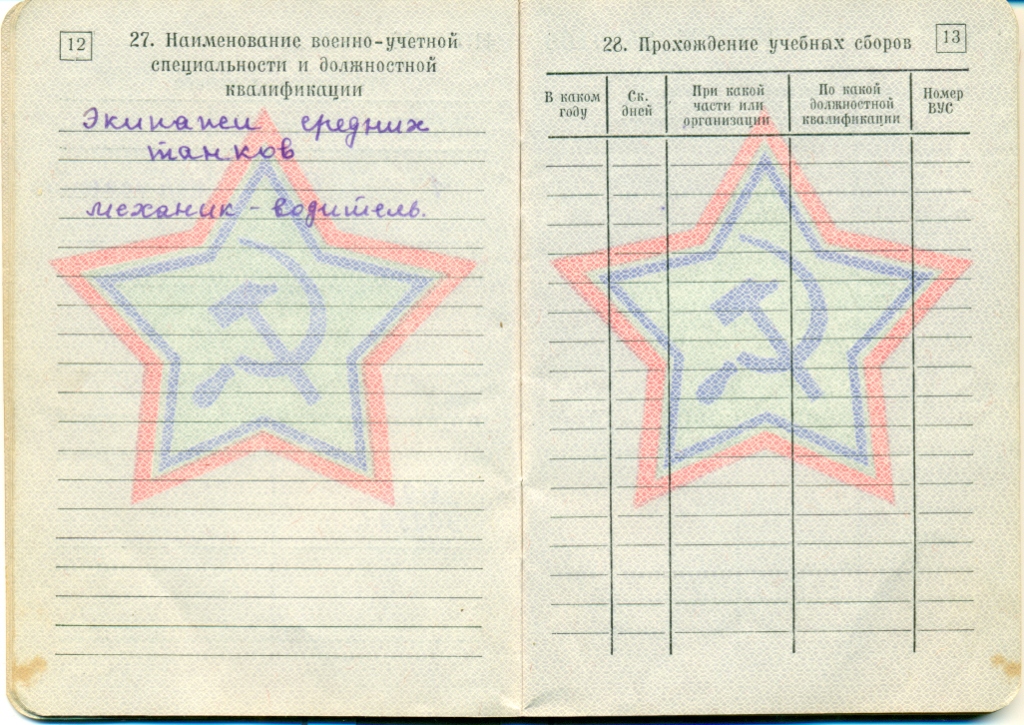 12
27. Наименование военно-учетной
специальности и должностной
квалификации
Экипажи средних
танков
механик-водитель.
13
28. Прохождение учебных сборов
В каком
году
Ск.
дней
При какой
части или
организации
По какой
должностной
квалификации
Номер
ВУС